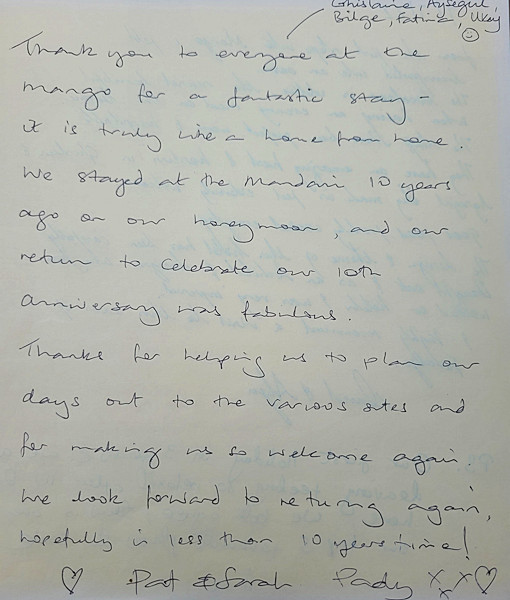 Ghislaine, Aysegul,
Bilge, Fatima, Ukay
Thank you to everyone at the
mango for a fantastic stay -
it is truly like a home from home.
We stayed at the Mandarin 10 years
ago on our honeymoon, and our
return to celebrate our 10th
anniversary was fabulous.
Thanks for helping us to plan our
days out to the various sites and
for making us so welcome again.
We look forward to returning again,
hopefully in less than 10 years time!
Pat & Sarah Pady xxx